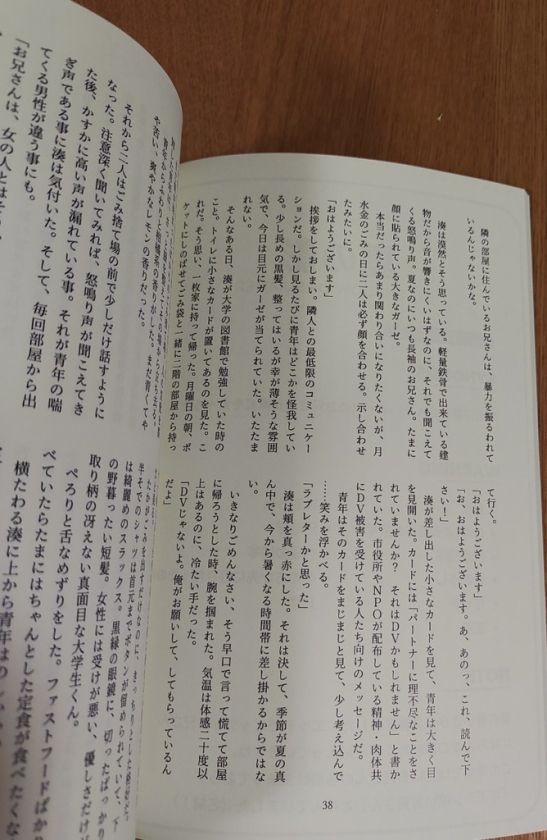 隣の部屋に住んでいるお兄さんは、暴力を振るわれて
いるんじゃないかな。
湊は漠然とそう思っている。軽量鉄骨で出来ている建
物だから音が響きにくいはずなのに、それでも聞こえて
くる怒鳴り声。夏なのにいつも長袖のお兄さん。たまに
顔に貼られている大きなガーゼ。
本当だったらあまり関わり合いになりたくないが、月
水金のごみの日に二人は必ず顔を合わせる。示し合わせ
たみたいに。
「おはようございます」
挨拶をしておしまい。隣人との最低限のコミュニケー
ションだ。しかし見るたびに青年はどこかを怪我してい
る。少し長めの黒髪、整ってはいるが幸が薄そうな雰囲
気で、今日は目元にガーゼが当てられていた。いたたま
れない。
そんなある日、湊が大学の図書館で勉強していた時の
こと。トイレに小さなカードが置いてあるのを見た。こ
れだ。そう思い、一枚家に持って帰った。月曜日の朝、ポ
ケットにしのばせてごみ袋と一緒に二階の部屋から持っ
て行く。
「おはようございます」
「お、おはようございます。あ、あのっ、これ、読んで下
さい！」
湊が差し出した小さなカードを見て、青年は大きく目
を見開いた。カードには「パートナーに理不尽なことをさ
れていませんか？　それはDVかもしれません」と書か
れていた。市役所やNPOが配布している精神・肉体共
にDV被害を受けている人たち向けのメッセージだ。
青年はそのカードをまじまじと見て、少し考え込んで
……笑みを浮かべる。
「ラブレターかと思った」
湊は頬を真っ赤にした。それは決して、季節が夏の真
ん中で、今から暑くなる時間帯に差し掛かるからではな
い。
いきなりごめんなさい、そう早口で言って慌てて部屋
に帰ろうとした時、腕を掴まれた。気温は体感二十度以
上はあるのに、冷たい手だった。
「DVじゃないよ。俺がお願いして、してもらっているん
だよ」
38
や渋い、爽やかなレモンの香りだった。まだ青くてや
それから二人はごみ捨て場の前で少しだけ話すように
なった。注意深く聞いてみれば、怒鳴り声が聞こえてき
た後、かすかに高い声が漏れている事。それが青年の喘
ぎ声である事に湊は気付いた。そして、毎回部屋から出
てくる男性が違う事にも。
「お兄さんは、女の人とは
半そでのシャツは首元までボタンが留められていて、下
は綺麗めのスラックス。黒縁の眼鏡に、切ったばっかり
の野暮ったい短髪。女性には受けが悪い、優しさだけが
取り柄の冴えない真面目な大学生くん。
ぺろりと舌なめずりをした。ファストフードばか
べていたらたまにはちゃんとした定食が食べたくな
横たわる湊に上から青年は